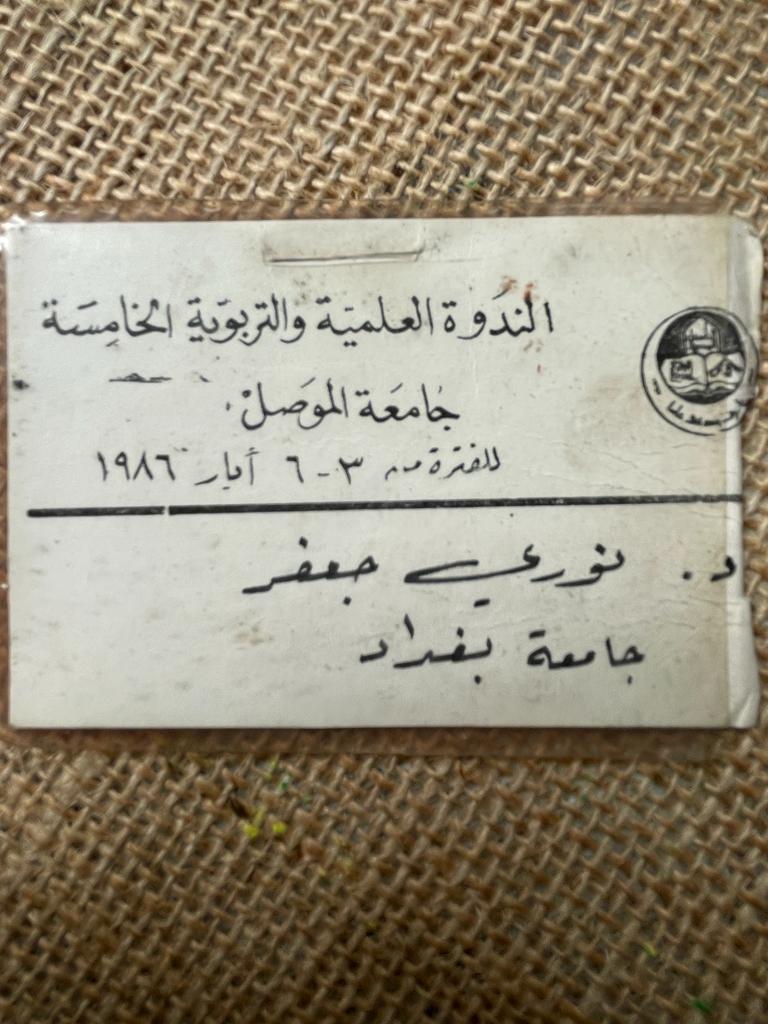 الندوة العلمية والتربوية الخامسة
جامعة الموصل
للفترة من ٣ - ٦ أيار ١٩٨٦
د. نوري جعفر
جامعة بغداد